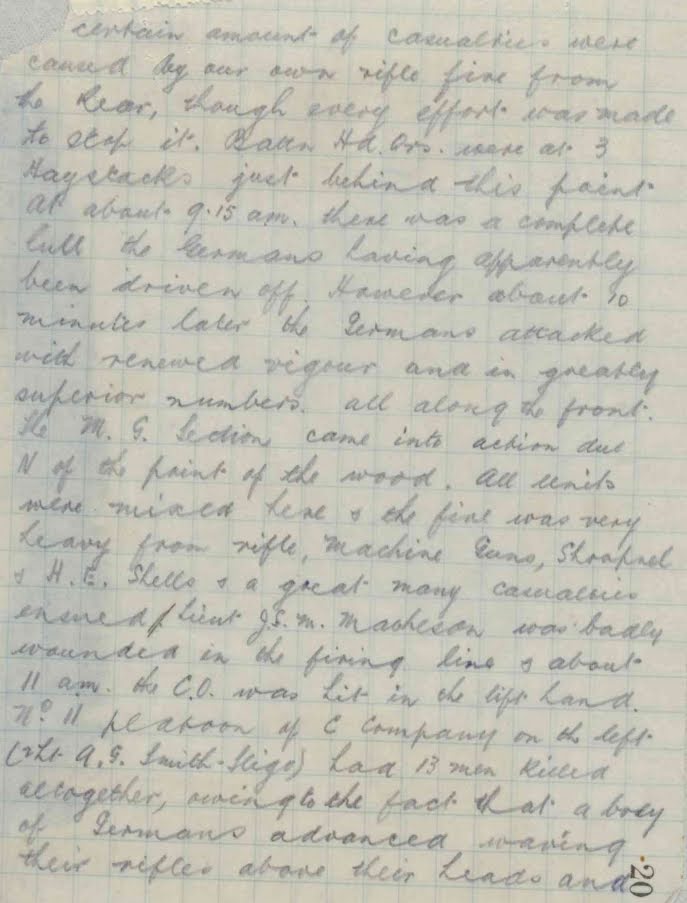 certain amount of casualties were
caused by our own rifle fire from
the Rear, though every effort was made
to stop it. Battn Hd. Qrs. were at 3
Haystacks just behind this point
At about 9.15 am. there was a complete
lull the Germans having apparently
been driven off. However about 10
minutes later the Germans attacked
with renewed vigour and in greatly
superior numbers. all along the front.
The M. G. Section came into action due
N of the point of the wood. All units
were mixed here & the fire was very
heavy from rifle, Machine Guns, Shrapnel
& H.E. Shells & a great many casualties
ensued / Lieut J.S.M. Matheson was badly
wounded in the firing line & about
11 am. the C.O. was hit in the left hand.
No. 11 platoon of C Company on the left
(2Lt. A.G. Smith-Sligo) had 13 men killed
altogether, owing to the fact that a body
of Germans advanced waving
their rifles above their heads and
20